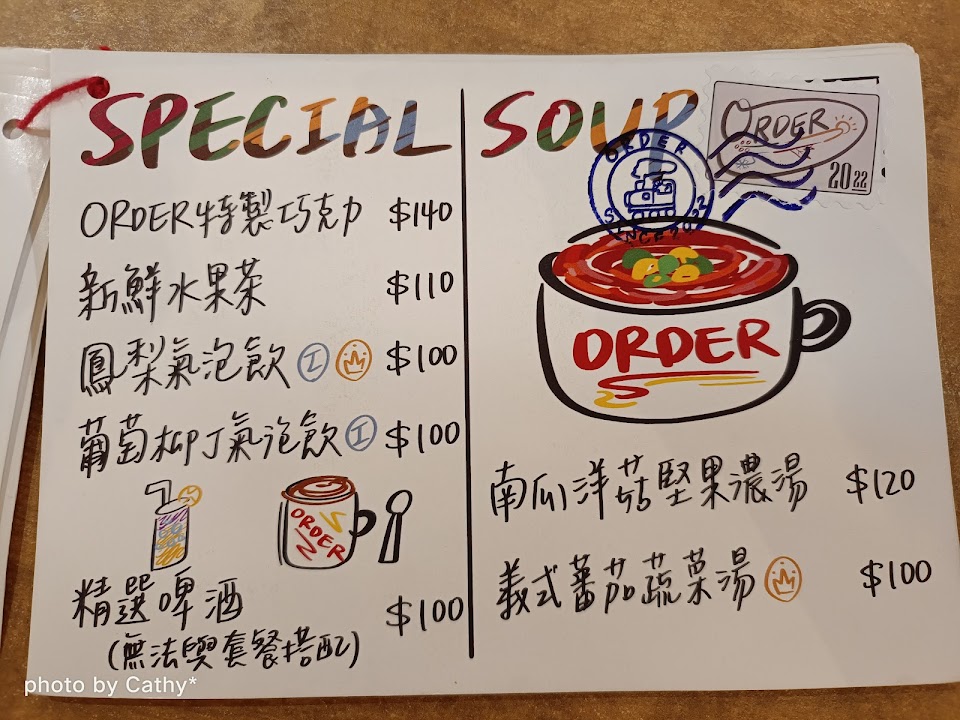 SPECIAL
ORDER特製巧克力 $140
新鮮水果茶 $110
鳳梨氣泡飲 I $100
葡萄柳丁氣泡飲 I $100
ORDER
精選啤酒 $100
(無法與套餐搭配)
SOUP
ORDER
2022
ORDER
SINCE 2022
ORDER
南瓜洋菇堅果濃湯 $120
義式蕃茄蔬菜湯 $100
photo by Cathy*